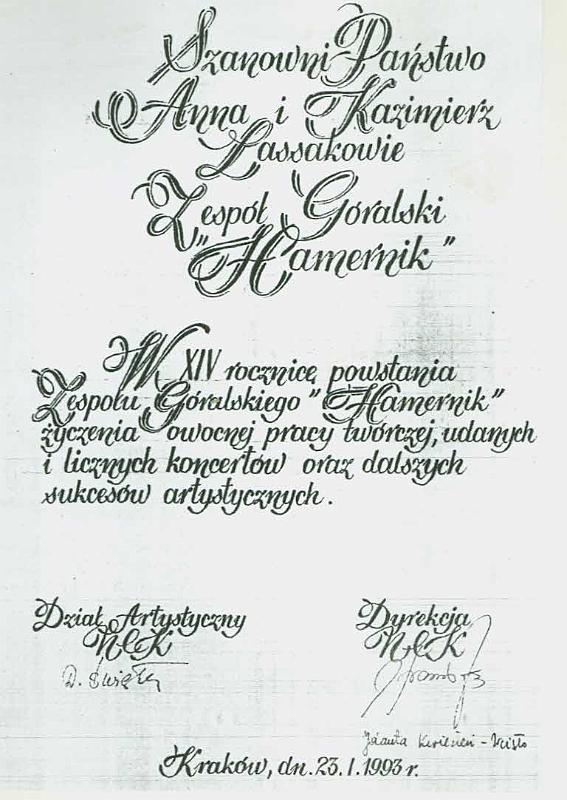 Szanowni Państwo
Anna i Kazimierz
Lassakowie
Zespół Góralski
"Hamernik"
W XIV rocznicę powstania
Zespołu Góralskiego "Hamernik"
życzenia owocnej pracy twórczej, udanych
i licznych koncertów oraz dalszych
sukcesów artystycznych.
Dział Artystyczny
NCK
Dyrekcja
NCK
Kraków, dn. 23.I.1993 r.